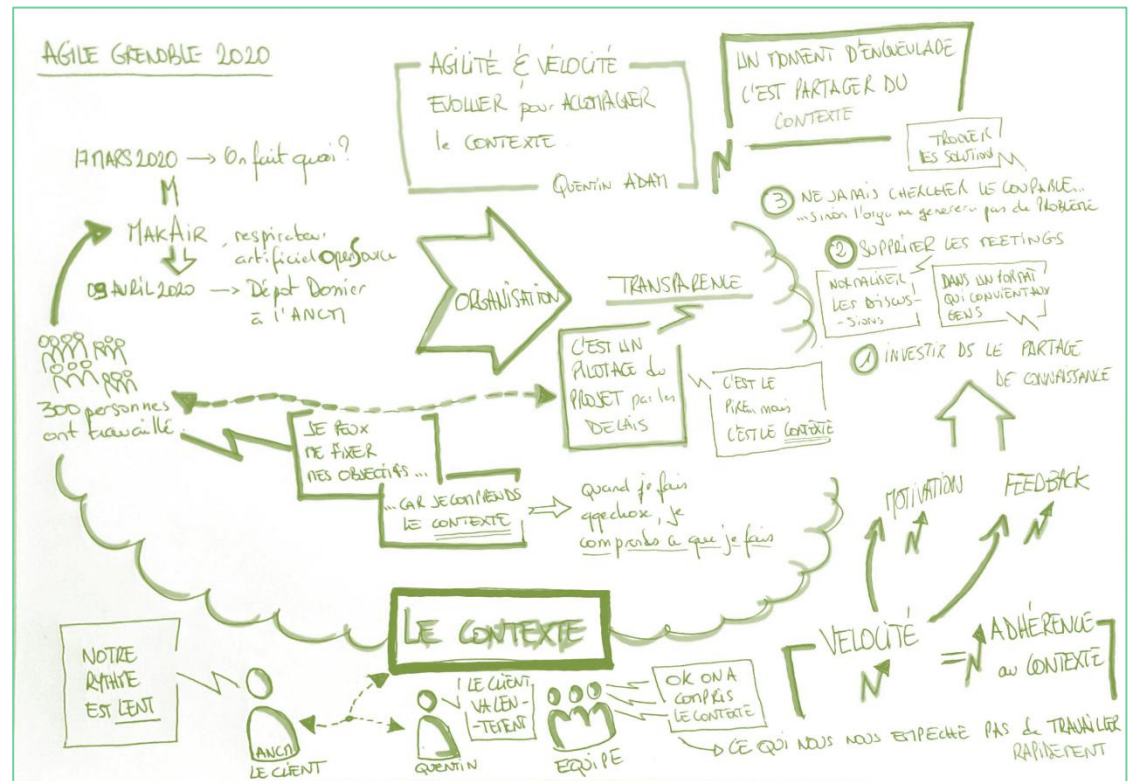 AGILE GRENOBLE 2020
AGILITÉ & VÉLOCITÉ
EVOLUER pour ACCOMPAGNER
le CONTEXTE
QUENTIN ADAM
UN MOMENT D'ENGUEULADE
C'EST PARTAGER DU
CONTEXTE
TROUVER
LES SOLUTIONS
17 MARS 2020 → On fait quoi?
MAKAIR
respirateur
artificiel OpenSource
09 AVRIL 2020 → Dépôt Dossier
à l'ANCM
300 personnes
ont travaillé.
ORGANISATION
TRANSPARENCE
C'EST UN
PILOTAGE du
PROJET par les
DELAIS
C'EST LE
PIRE... mais
C'EST LE CONTEXTE
③ NE JAMAIS CHERCHER LE COUPABLE...
...sinon l'orga ne generera pas de PROBLÈME
② SUPPRIMER LES MEETINGS
NORMALISER
LES DISCUS-
-SIONS
DANS UN FORMAT
QUI CONVIENT AUX
GENS
① INVESTIR DS LE PARTAGE
DE CONNAISSANCE
JE PEUX
ME FIXER
MES OBJECTIFS...
...CAR JE COMPRENDS
LE CONTEXTE
Quand je fais
qqechose, je
comprends ce que je fais
MOTIVATION
FEEDBACK
VELOCITÉ
= ADHÉRENCE
au CONTEXTE
LE CONTEXTE
NOTRE
RYTHME
EST LENT
ANCM
LE CLIENT
QUENTIN
LE CLIENT
VA LEN-
-TEMENT
EQUIPE
OK ON A
COMPRIS
LE CONTEXTE
→ CE QUI NOUS NOUS EMPECHE PAS de TRAVAILLER
RAPIDEMENT